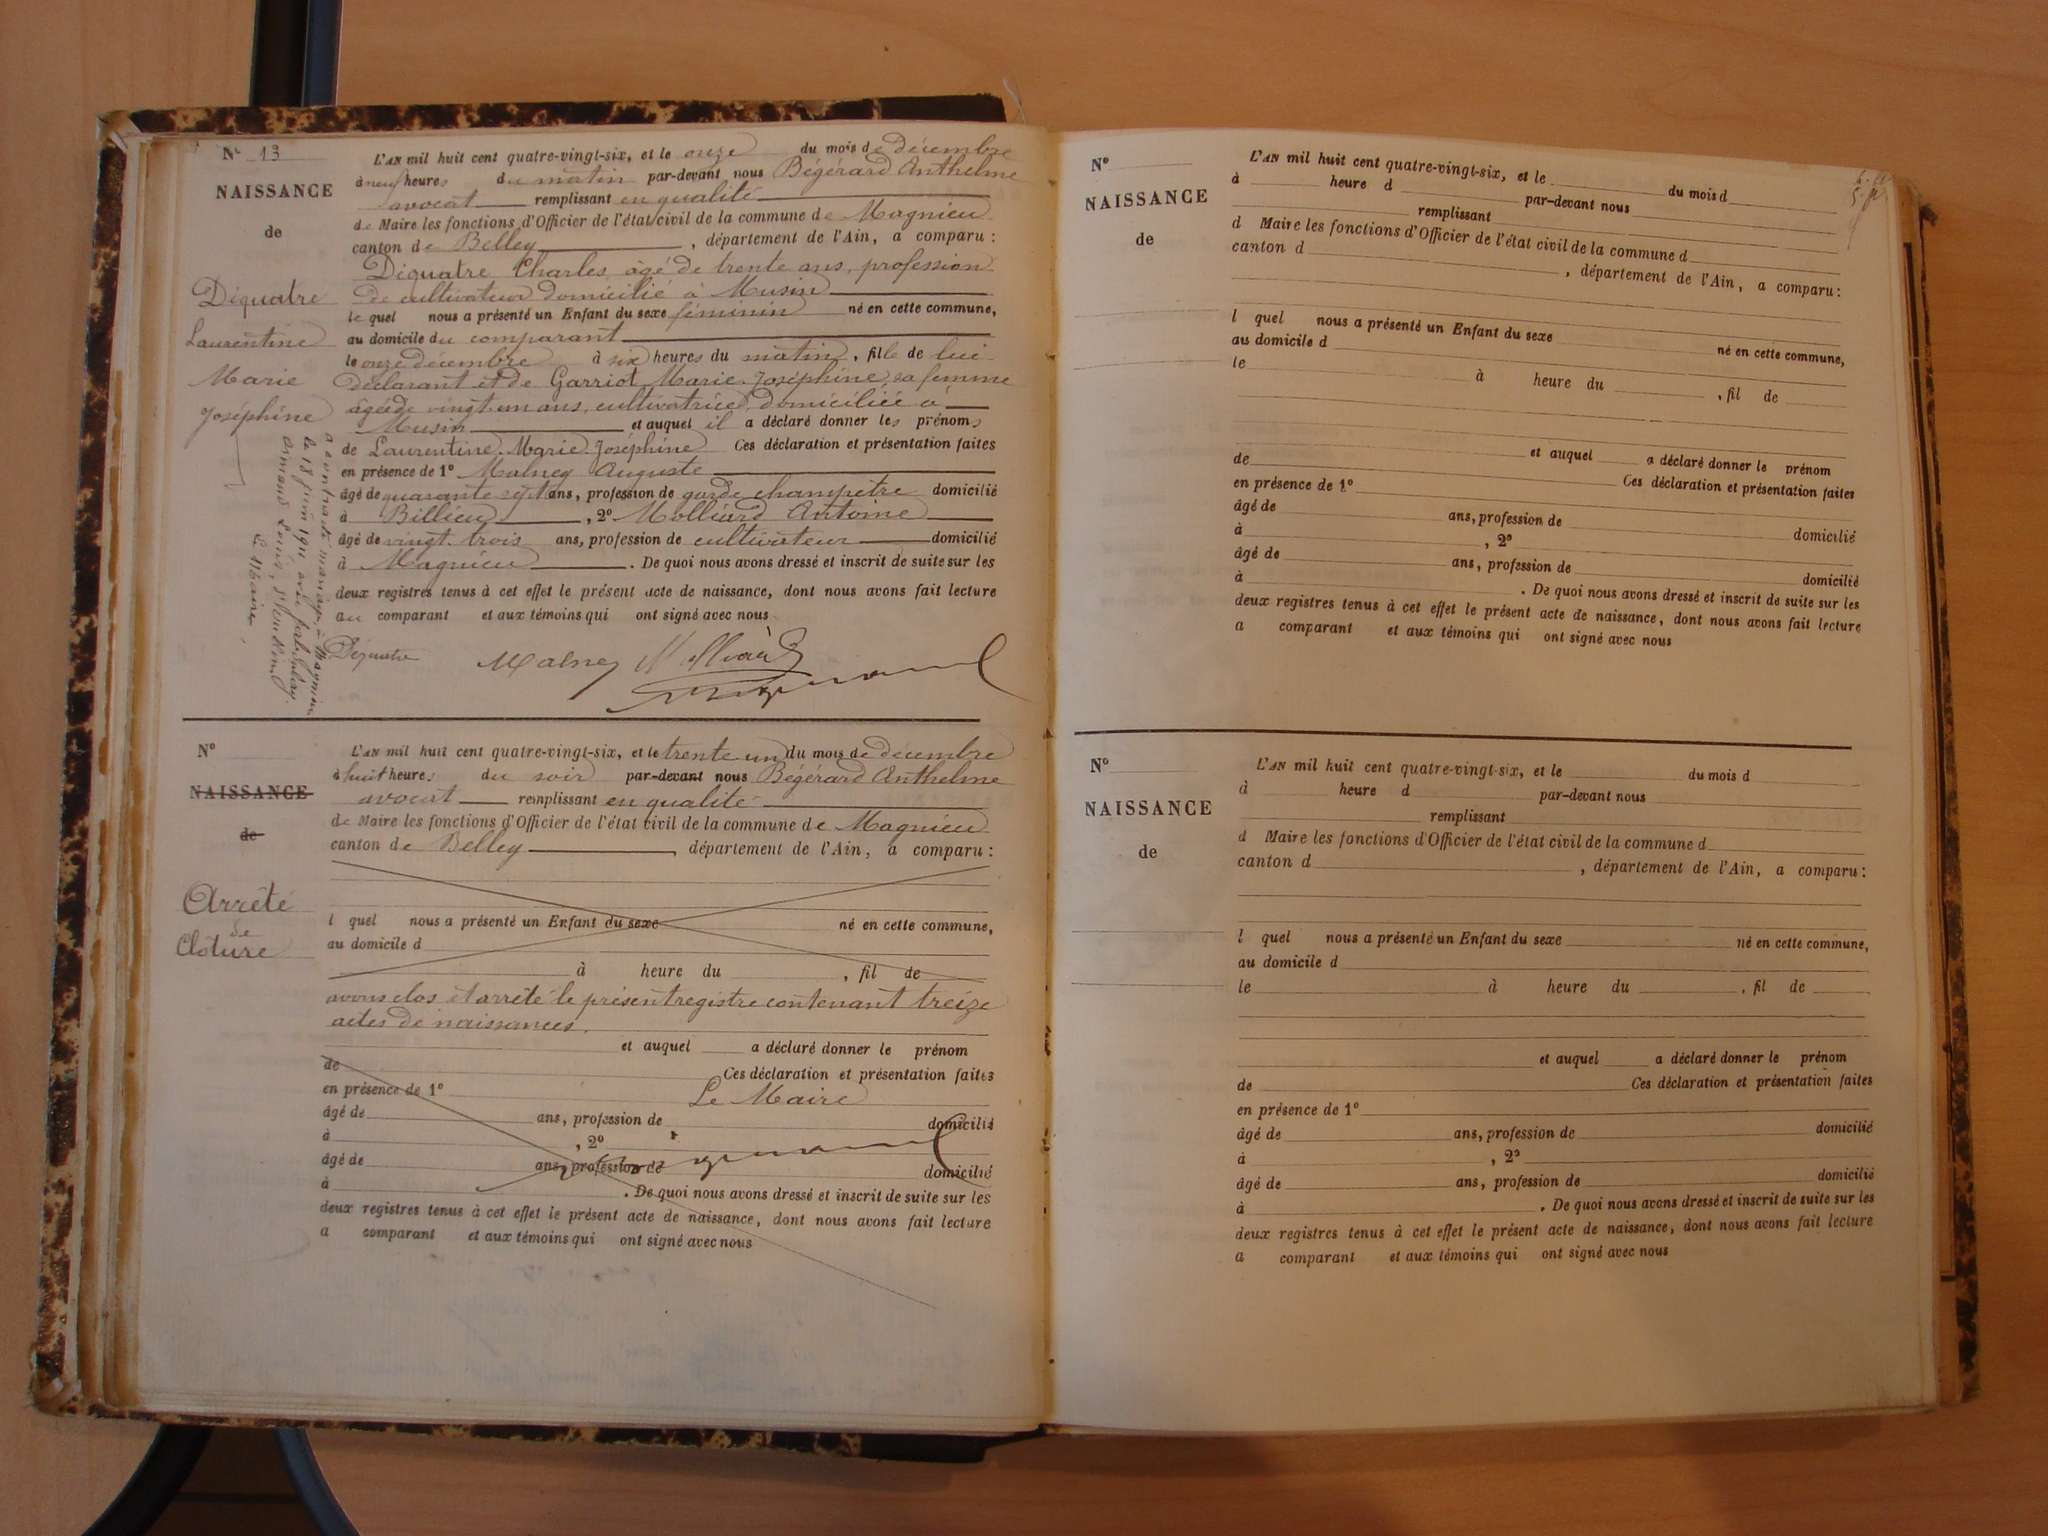 N° 13
NAISSANCE
de
Déquatre
Laurentine
Marie
Joséphine
L'AN mil huit cent quatre-vingt-six, et le onze du mois de décembre
à neuf heures du matin par-devant nous Bégérard Anthelme
avocat remplissant en qualité
de Maire les fonctions d'Officier de l'état civil de la commune de Magnieu
canton de Belley , département de l'Ain, a comparu :
Déquatre Charles, âgé de trente ans, profession
de cultivateur domicilié à Musin
lequel nous a présenté un Enfant du sexe féminin né en cette commune,
au domicile du comparant
le onze décembre à six heures du matin, fille de lui
déclarant et de Garriot Marie Joséphine sa femme
âgée de vingt un ans, cultivatrice, domiciliée à
Musin et auquel il a déclaré donner les prénoms
de Laurentine Marie Joséphine Ces déclaration et présentation faites
en présence de 1° Malney Auguste
âgé de quarante sept ans, profession de garde champêtre domicilié
à Billieu , 2° Molliard Antoine
âgé de vingt trois ans, profession de cultivateur domicilié
à Magnieu . De quoi nous avons dressé et inscrit de suite sur les
deux registres tenus à cet effet le présent acte de naissance, dont nous avons fait lecture
au comparant et aux témoins qui ont signé avec nous
a contracté mariage à Magnieu
le 18 juin 1911 avec
Armand Louis,
Le Maire,
Déquatre Malney Molliard
N°
NAISSANCE
de
Arrêté
de
Clôture
L'AN mil huit cent quatre-vingt-six, et le trente un du mois de décembre
à huit heures du soir par-devant nous Bégérard Anthelme
avocat remplissant en qualité
de Maire les fonctions d'Officier de l'état civil de la commune de Magnieu
canton de Belley , département de l'Ain, a comparu :
l quel nous a présenté un Enfant du sexe né en cette commune,
au domicile d
à heure du , fil de
avons clos et arrêté le présent registre contenant treize
actes de naissances.
et auquel a déclaré donner le prénom
de Ces déclaration et présentation faites
en présence de 1° Le Maire
âgé de ans, profession de domicilié
à , 2°
âgé de ans, profession de domicilié
à . De quoi nous avons dressé et inscrit de suite sur les
deux registres tenus à cet effet le présent acte de naissance, dont nous avons fait lecture
a comparant et aux témoins qui ont signé avec nous
N°
NAISSANCE
de
L'AN mil huit cent quatre-vingt-six, et le du mois d
à heure d par-devant nous
remplissant
d Maire les fonctions d'Officier de l'état civil de la commune d
canton d , département de l'Ain, a comparu :
l quel nous a présenté un Enfant du sexe né en cette commune,
au domicile d
le à heure du , fil de
et auquel a déclaré donner le prénom
de Ces déclaration et présentation faites
en présence de 1°
âgé de ans, profession de domicilié
à , 2°
âgé de ans, profession de domicilié
à . De quoi nous avons dressé et inscrit de suite sur les
deux registres tenus à cet effet le présent acte de naissance, dont nous avons fait lecture
a comparant et aux témoins qui ont signé avec nous
N°
NAISSANCE
de
L'AN mil huit cent quatre-vingt-six, et le du mois d
à heure d par-devant nous
remplissant
d Maire les fonctions d'Officier de l'état civil de la commune d
canton d , département de l'Ain, a comparu :
l quel nous a présenté un Enfant du sexe né en cette commune,
au domicile d
le à heure du , fil de
et auquel a déclaré donner le prénom
de Ces déclaration et présentation faites
en présence de 1°
âgé de ans, profession de domicilié
à , 2°
âgé de ans, profession de domicilié
à . De quoi nous avons dressé et inscrit de suite sur les
deux registres tenus à cet effet le présent acte de naissance, dont nous avons fait lecture
a comparant et aux témoins qui ont signé avec nous